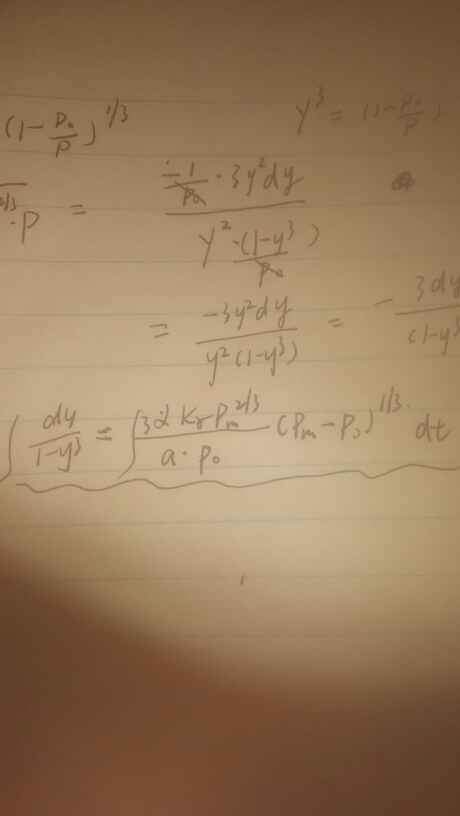 (1 - P₀/P)^1/3    y³ = (1 - P₀/P)
2/3 · P = (-1/P₀ · 3y²dy) / (y² · (1-y³)/P₀)
= -3y²dy / y²(1-y³) = - 3dy / (1-y³
∫ dy/(1-y³) = ∫ (Pₘ^2/3 / a · P₀) (Pₘ - P₀)^1/3 dt